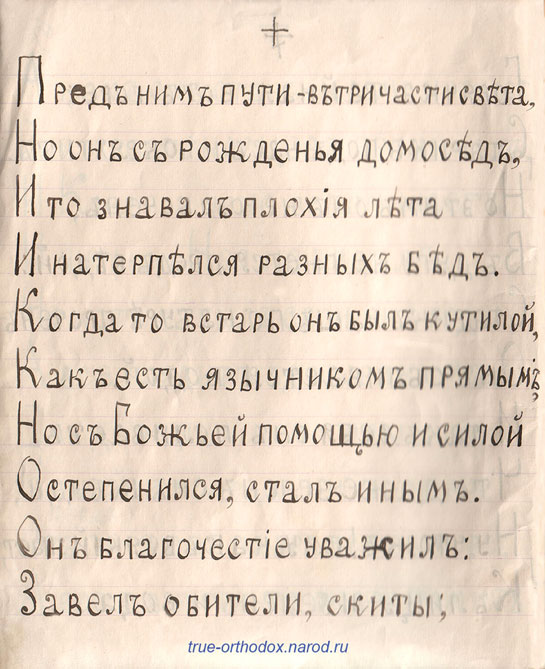 Предъ нимъ пути - въ три части свѣта,
Но онъ съ рожденья домосѣдъ,
И то знавалъ плохiя лѣта
И натерпѣлся разныхъ бѣдъ.
Когда то встарь онъ былъ кутилой,
Какъ есть язычникомъ прямымъ;
Но съ Божьей помощью и силой
Остепенился, сталъ инымъ.
Онъ благочестiе уважилъ:
Завелъ обители, скиты;
true-orthodox.narod.ru